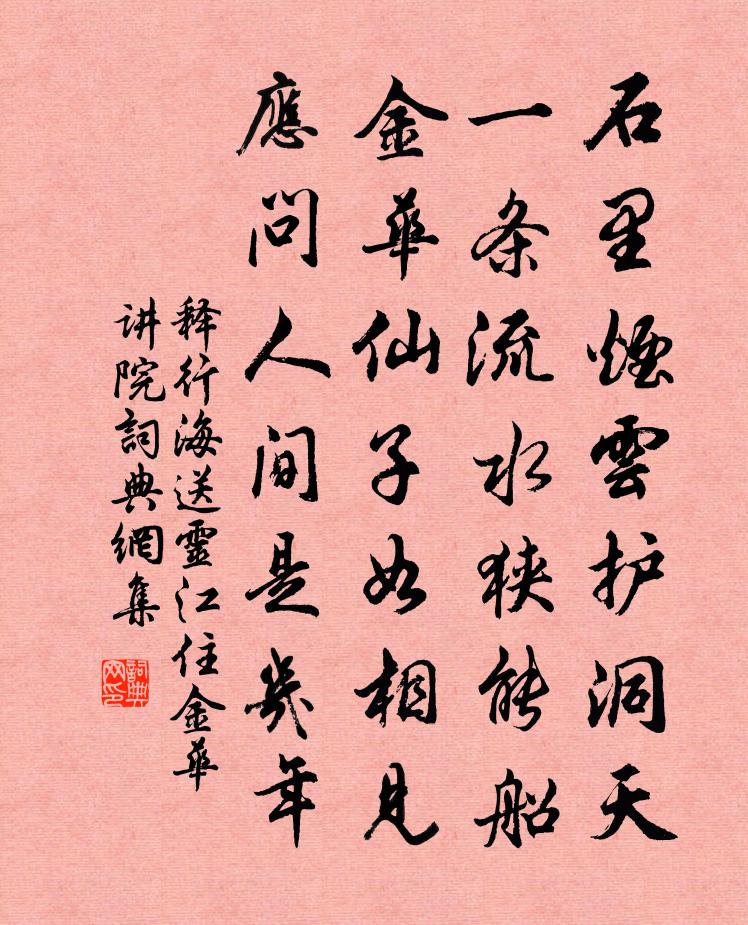 石里煙雲护洞天
一条流水狭能船
金華仙子如相見
應問人间是幾年
释行海送靈江住金華
讲院詞典網集
詞典网印